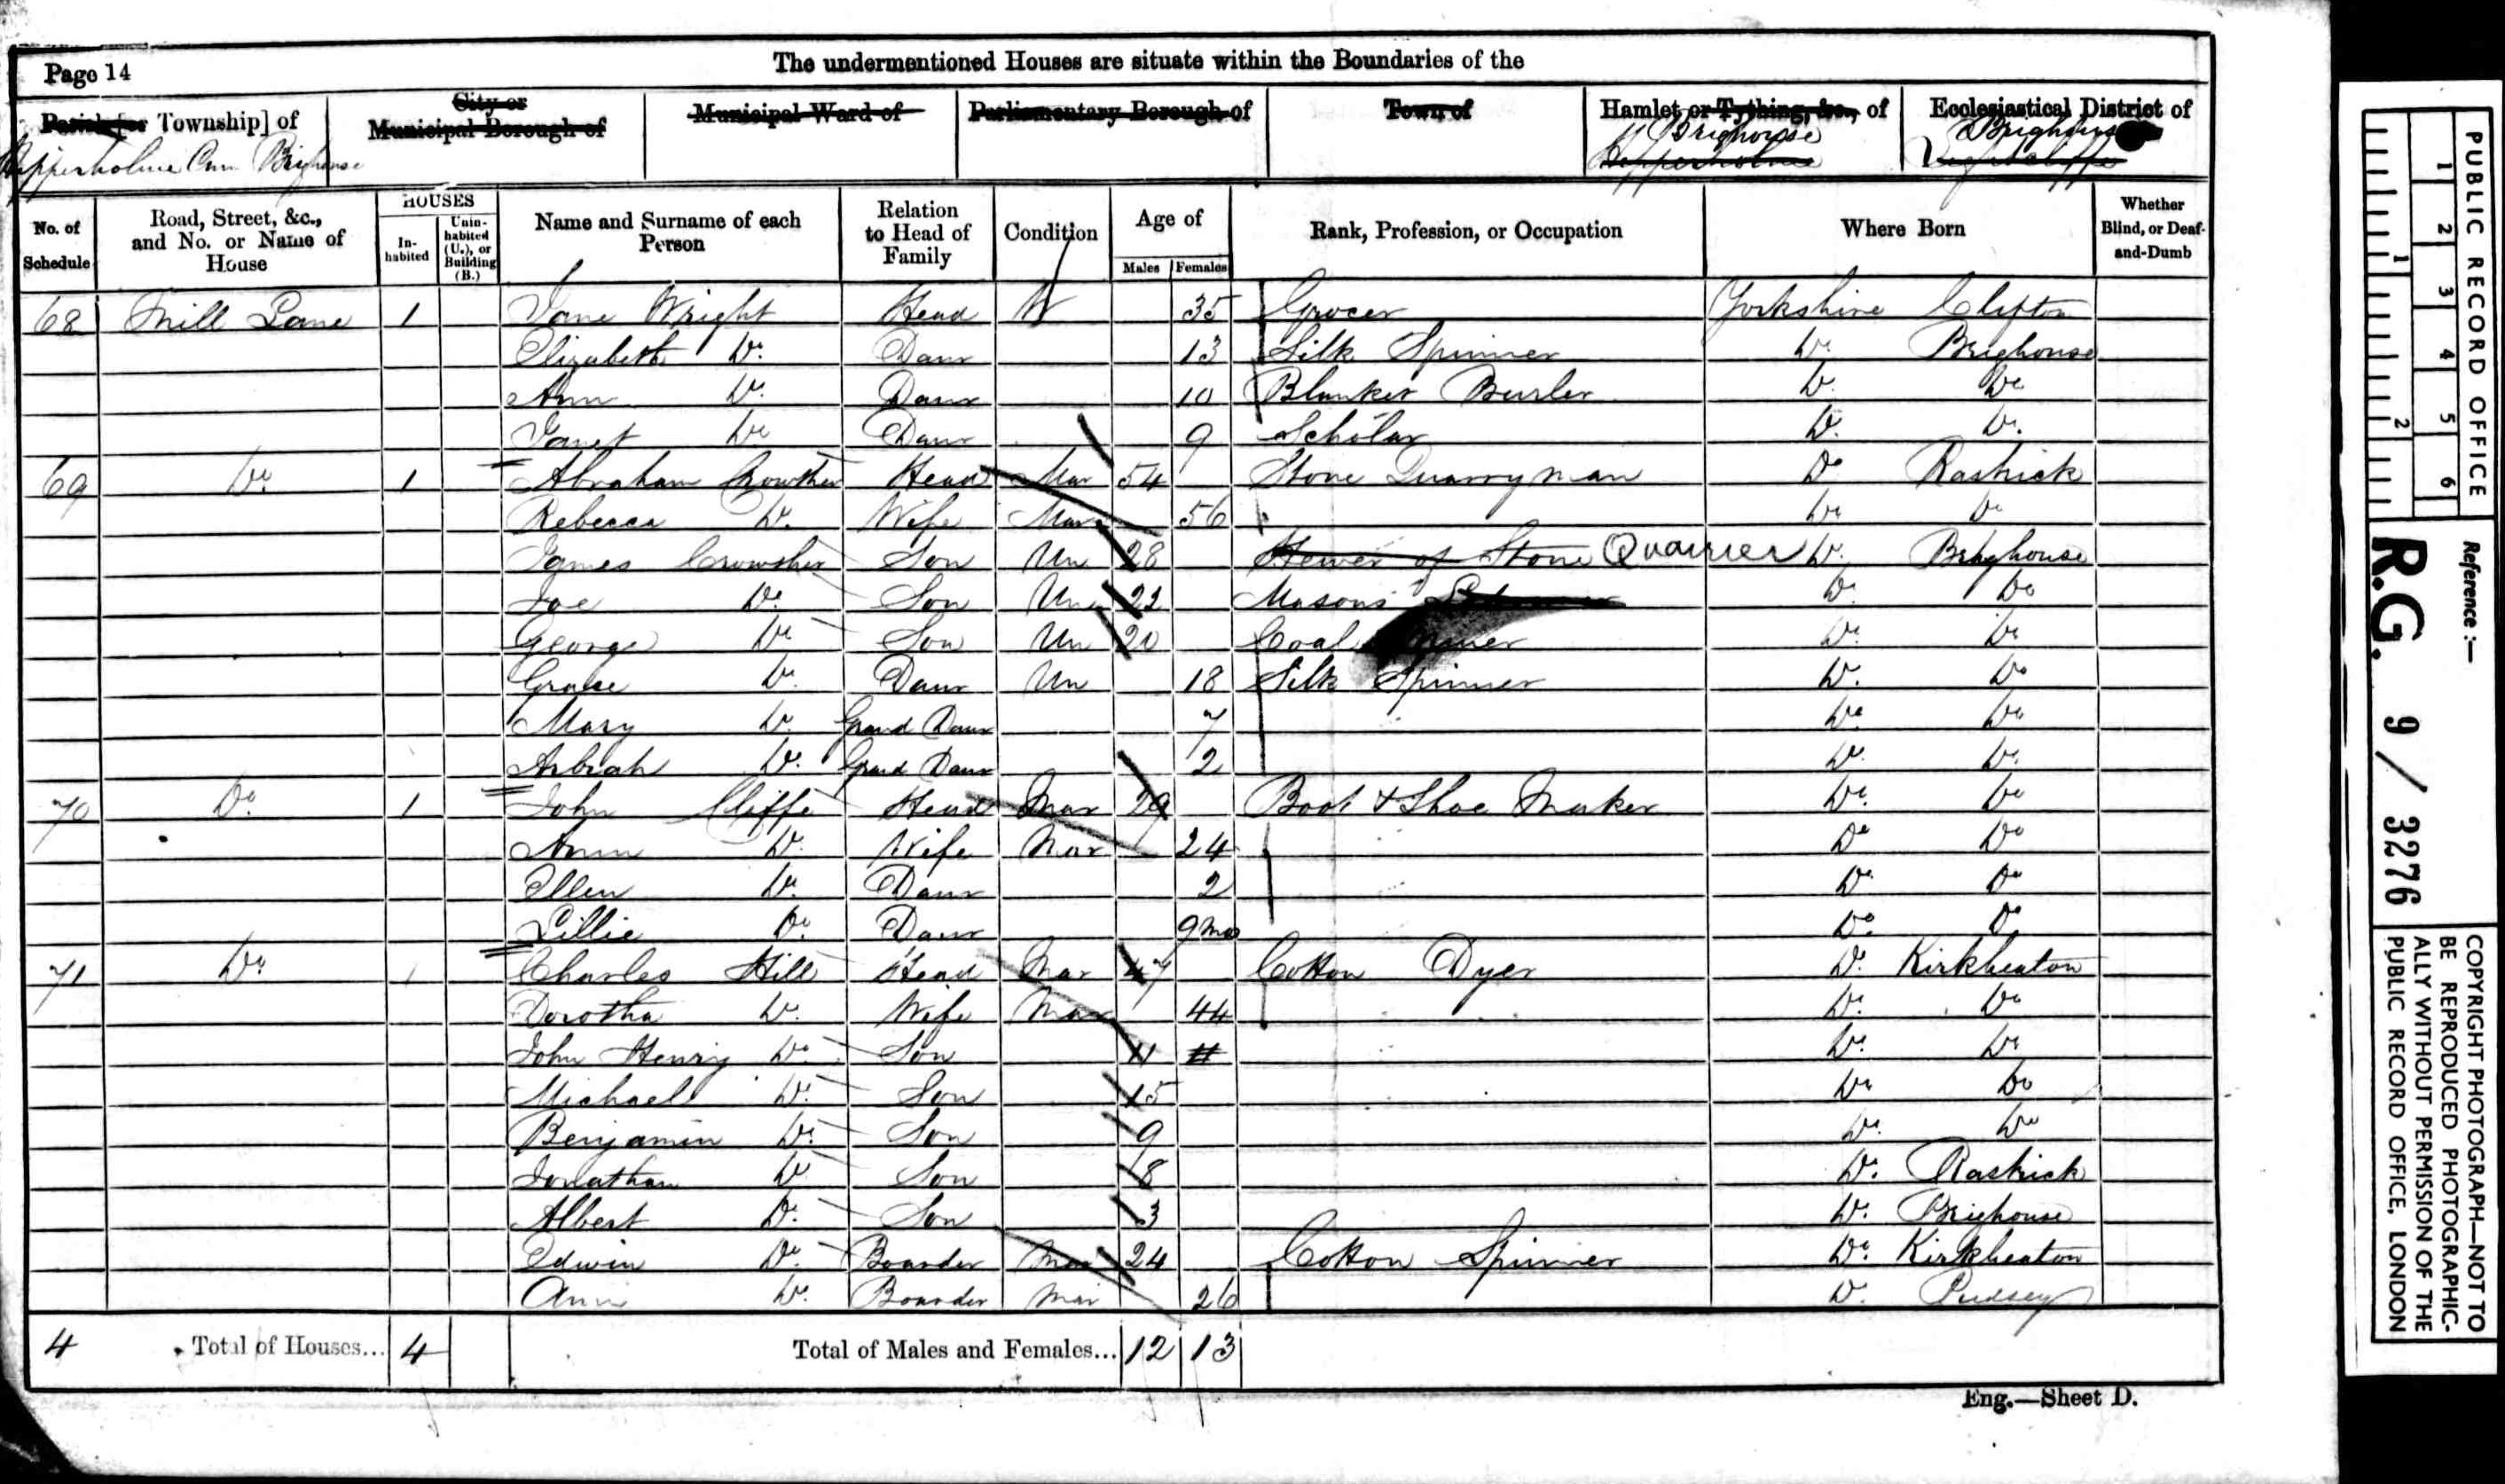 The undermentioned Houses are situate within the Boundaries of the
Page 14
Parish [or Township] of
City or Municipal Borough of
Municipal Ward of
Parliamentary Borough of
Town of
Hamlet or Tything, &c., of
Ecclesiastical District of
Hipperholme Cum Brighouse
Brighouse
Hipperholme
Brighouse
Lightcliffe
No. of Schedule
Road, Street, &c., and No. or Name of House
HOUSES
In-habited
Unin-habited (U.), or Building (B.)
Name and Surname of each Person
Relation to Head of Family
Condition
Age of
Males
Females
Rank, Profession, or Occupation
Where Born
Whether Blind, or Deaf-and-Dumb
68 Mill Lane 1 Jane Wright Head W 35 Grocer Yorkshire Clifton
Elizabeth Do. Daur 13 Silk Spinner Do. Brighouse
Ann Do. Daur 10 Blanket Burler Do. Do
Janet Do Daur 9 Scholar Do. Do.
69 Do. 1 Abraham Crowther Head Mar 54 Stone Quarryman Do Rastrick
Rebecca Do. Wife Mar 56 Do Do
James Crowther Son Un 28 Hewer of Stone Quarrier Do. Brighouse
Joe Do. Son Un 22 Masons Do. Do
George Do Son Un 20 Coal Do. Do
Grace Do. Daur Un 18 Silk Spinner Do. Do
Mary Do. Grand Daur 7 Do. Do
Do. Grand Daur 2 Do. Do.
70 Do. 1 John Cliffe Head Mar 29 Boot & Shoe Maker Do. Do
Ann Do. Wife Mar 24 Do Do
Ellen Do. Daur 2 Do. Do
Lillie Do. Daur 9 mo Do. Do
71 Do. 1 Charles Hill Head Mar 47 Cotton Dyer Do. Kirkheaton
Dorotha Do. Wife Mar 44 Do. Do
John Henry Do. Son 11 11 Do. Do
Michael Do. Son 15 Do Do
Benjamin Do. Son 9 Do. Do
Jonathan Do Son 8 Do. Rastrick
Albert Do. Son 3 Do. Brighouse
Edwin Do. Boarder Mar 24 Cotton Spinner Do. Kirkheaton
Ann Do. Boarder Mar 26 Do. Pudsey
4 Total of Houses... 4 Total of Males and Females... 12 13
Eng.—Sheet D.
PUBLIC RECORD OFFICE
1 2 3 4 5 6
1 2
Reference :—
R.G. 9 / 3276
COPYRIGHT PHOTOGRAPH—NOT TO BE REPRODUCED PHOTOGRAPHIC-ALLY WITHOUT PERMISSION OF THE PUBLIC RECORD OFFICE, LONDON